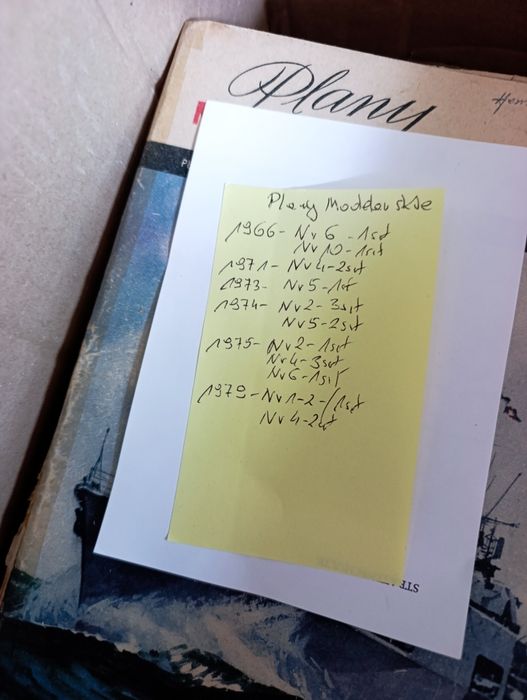 Plany
Plany Modelarskie
1966 - Nr 6 - 1szt
Nr 10 - 1szt
1971 - Nr 4 - 2szt
1973 - Nr 5 - 1szt
1974 - Nr 2 - 3szt
Nr 5 - 2szt
1975 - Nr 2 - 1szt
Nr 4 - 3szt
Nr 6 - 1szt
1979 - Nr 1-2 - 1szt
Nr 4 - 2szt